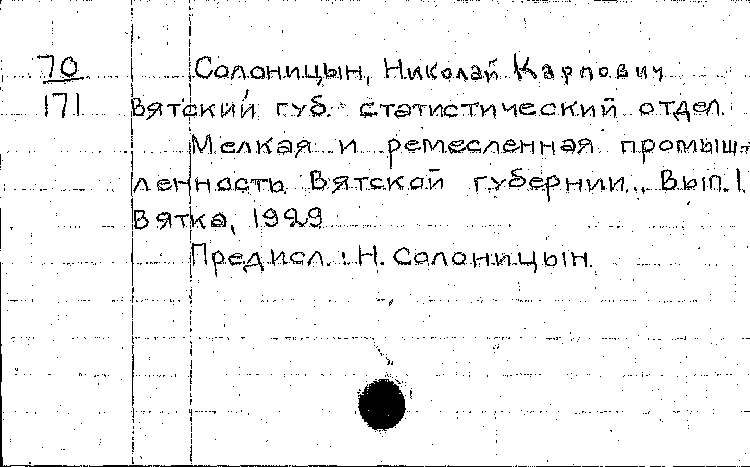 70 Солоницын, Николай Карпович
171 Вятский губ. статистический отдел.
Мелкая и ремесленная промыш-
ленность Вятской губернии.. Вып. 1
Вятка, 1929
Предисл.: Н. Солоницын.